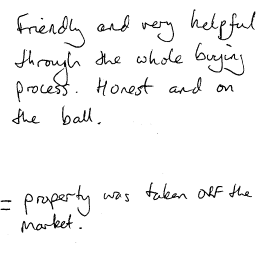 Friendly and very helpful
through the whole buying
process. Honest and on
the ball.
= property was taken off the
market.